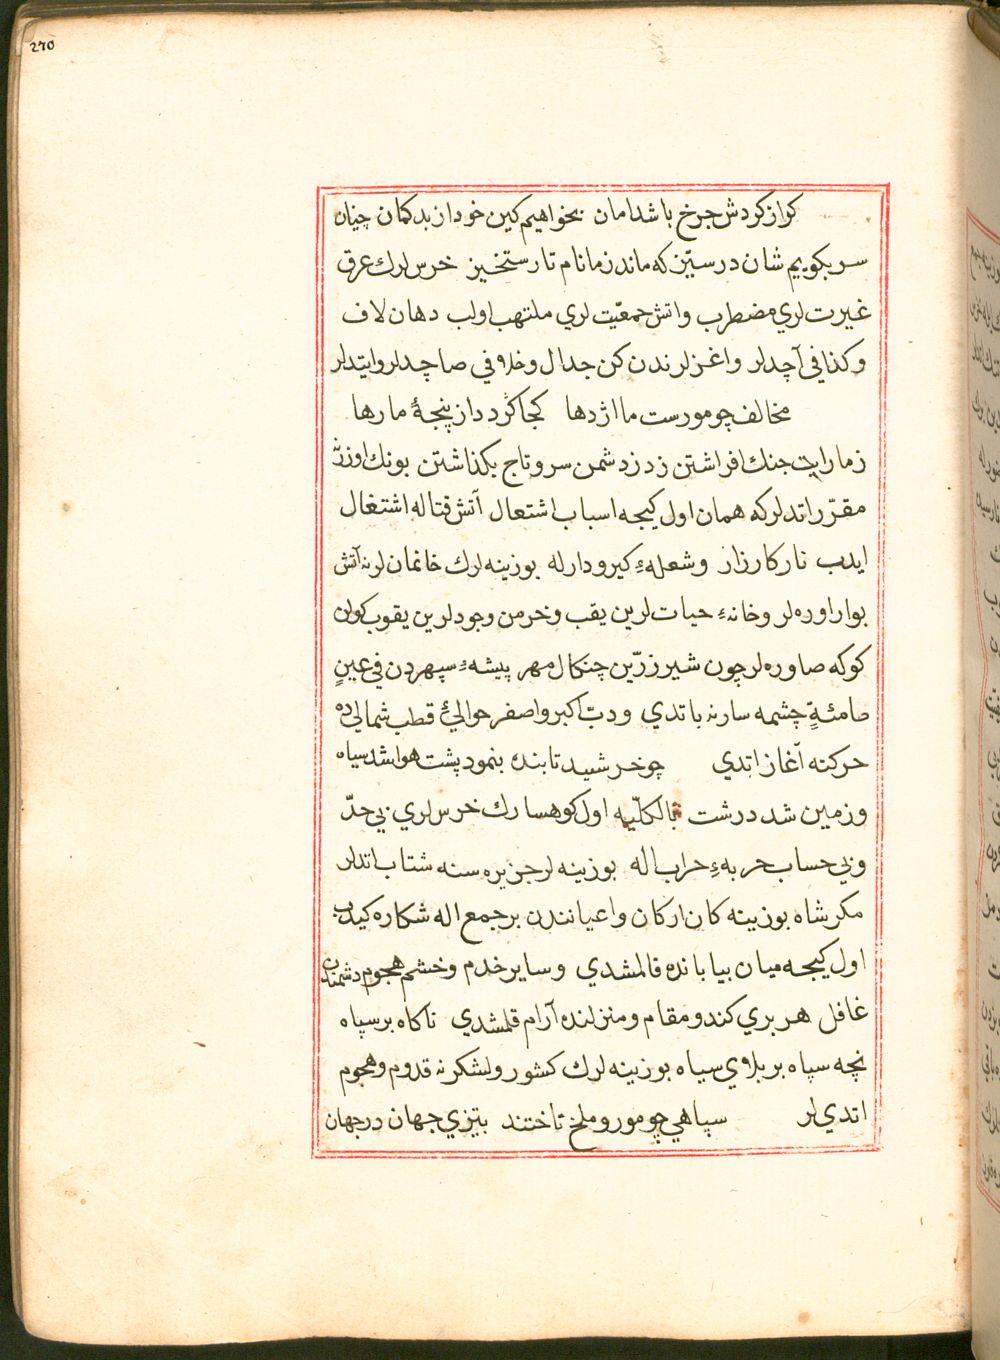 270
كراز كردش چرخ باشد امان بخواهيم كين خود از بدكمان چنان
سر بكوبيم شان در ستيز كه ماند زمانام تا رستخيز خرس لرك عرق
غيرت لري مضطرب واتش حمعيّت لري ملتهب اولب دهان لاف
وكذافي آچدلر واغزلرندن كن جدال وخلافي صاچدلر وايتدلر
مخالف چو مورست ما اژدها كجا كردد از پنجهٔ ما رها
زما رايت جنك افراشتن زدزد شمن سر وتاج بكذاشتن بونك اوزره
مقرّر اتدلر كه همان اول كيجه اسباب اشتعال آتش قتاله اشتغال
ايدب نار كارزار وشعلهءِ كيرودارله بوزينه لرك خانمان لرنه آتش
بوار اوره لر وخانهءِ حيات لرين يقب وخرمن وجودلرين يقوب كولن
كوكه صاوره لر چون شير زرّين چنكال مهر پيشهءِ سپهردن في عينٍ
حامئةٍ چشمه سارنه باتدي ودبّ اكبر واصغر حوالئ قطب شمالي ده
حركته آغاز اتدي چو خرشيد تابنده بنمود پشت هوا شد سياه
وزمين شد درشت بالكلّيه اول كوهسارك خرس لري بي حدّ
وبي حساب حربهءِ حراب اله بوزينه لر جزيره سنه شتاب اتدلر
مكر شاه بوزينه كان اركان واعيانندن بر جمع اله شكاره كيدب
اول كيجه ميان بيابانده قالمشدي وساير خدم وخشم هجوم دشمندن
غافل هر بري كندو مقام ومنزلنده آرام قلمشدي ناكاه بر سپاه
نچه سپاه بر بلاوي سياه بوزينه لرك كشور ولشكرنه قدوم وهجوم
اتدي لر سپاهي چو مور وملخ تاختند بتيزي جهان درجهان